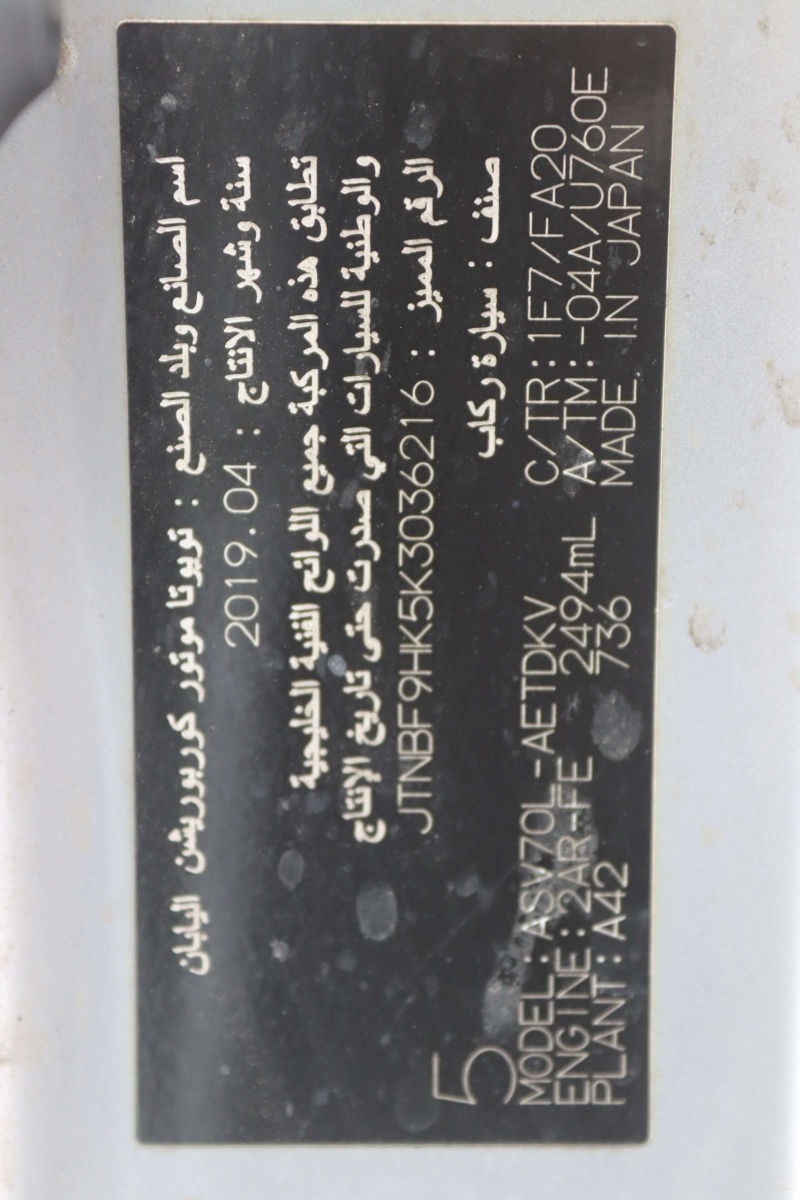 اسم الصانع وبلد الصنع : تويوتا موتور كوربوريشن اليابان
سنة وشهر الانتاج : 2019.04
تطابق هذه المركبة جميع اللوائح الفنية الخليجية
والوطنية للسيارات التي صدرت حتى تاريخ الإنتاج
الرقم المميز : JTNBF9HK5K3036216
صنف : سيارة ركاب
5
MODEL:ASV70L-AETDKV C/TR:1F7/FA20
ENGINE:2AR-FE 2494mL A/TM:-04A/U760E
PLANT:A42 736 MADE IN JAPAN